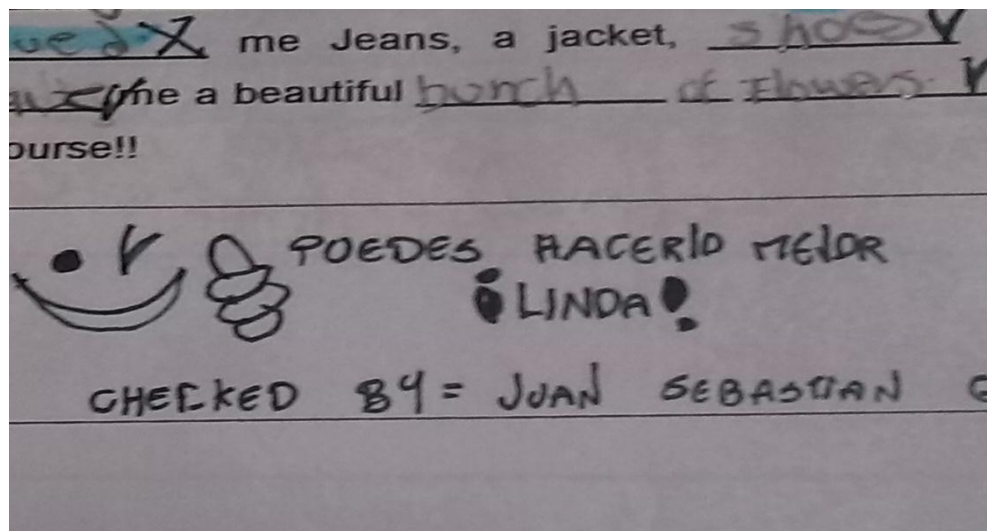 me Jeans, a jacket, shoes
me a beautiful bunch of Flowers.
ourse!!
PUEDES HACERLO MEJOR
¡LINDA!
CHECKED BY = JUAN SEBASTIAN